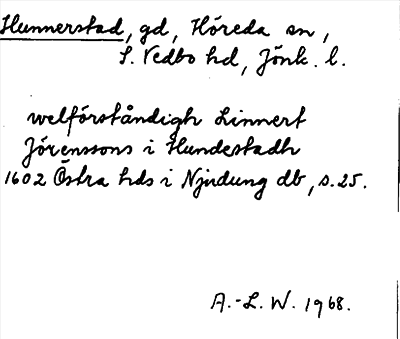 Hunnerstad, gd, Höreda sn,
S. Vedbo hd, Jönk. l.
welförståndigh Linnert
Jörenssons i Hundestadh
1602 Östra hds i Njudung db, s. 25.
A.-L. W. 1968.